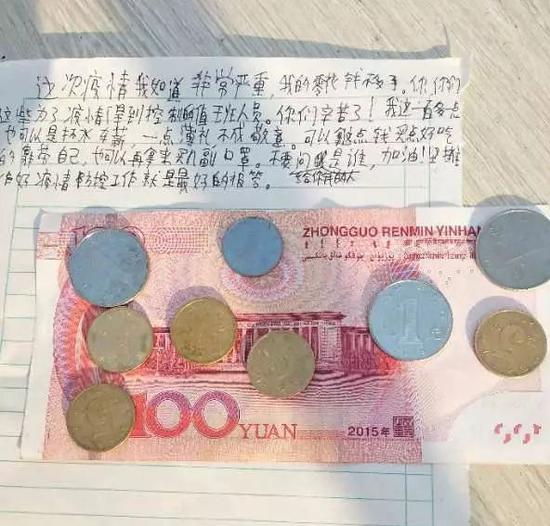 这次疫情我知道非常严重，我的零花钱移了。你们
这些为了疫情得到控制的值班人员。你们辛苦了！我这一百多点
也可以是杯水车薪，一点薄礼，不成敬意。可以
的靠劳自己，也可以再拿去买几副口罩。不要问我是谁，加油！坚
作好疫情防控工作就是最好的报答。
ZHONGGUO RENMIN YINHANG
100 YUAN
2015年
1